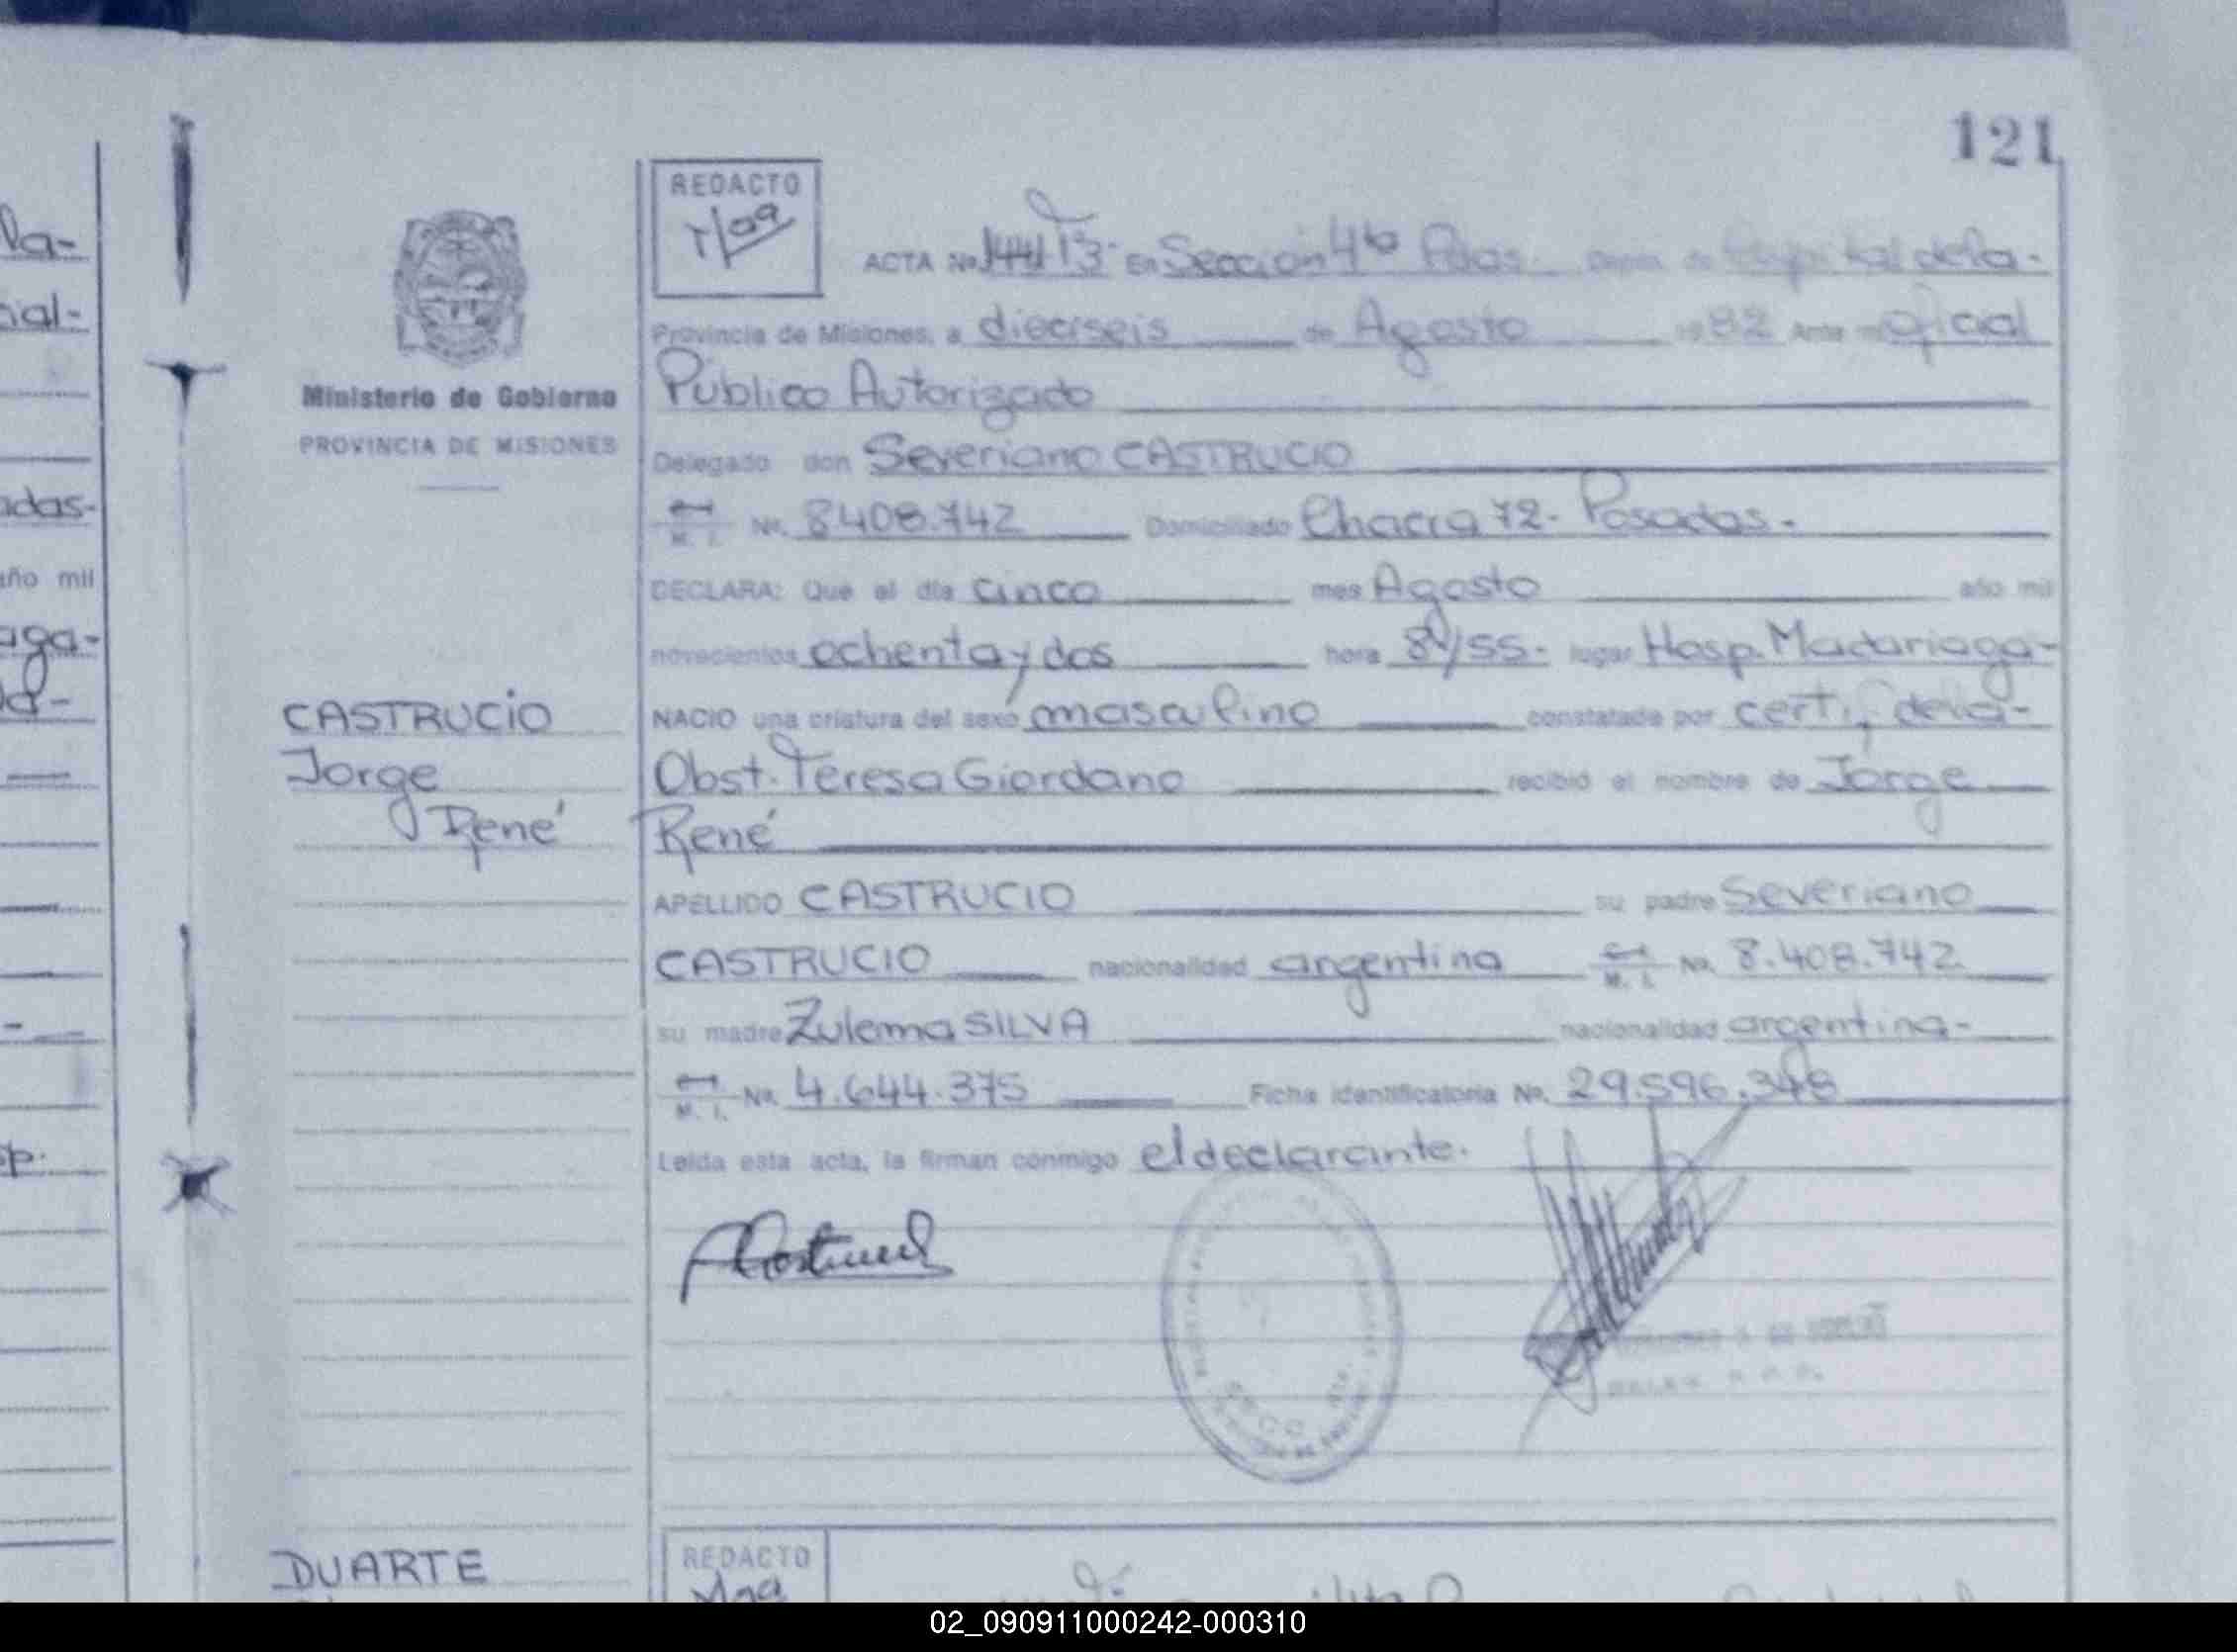 121
la-
ial-
adas-
año mil
aga-
la-
p.
Ministerio de Gobierno
PROVINCIA DE MISIONES
CASTRUCIO
Jorge
René
REDACTO
ACTA No. En Sección 4ta Pdas. Dpto. de Capital de la-
Provincia de Misiones, a dieciseis de Agosto 1982 Ante mi Oficial
Público Autorizado
Delegado don Severiano CASTRUCIO
M. I. No. 8408.742 Domiciliado Chacra 72- Posadas.-
DECLARA: Que el día cinco mes Agosto año mil
novecientos ochenta y dos hora 8/55- lugar Hosp. Madariaga-
NACIO una criatura del sexo masculino constatada por certif. de la-
Obst. Teresa Giordano recibió el nombre de Jorge
René
APELLIDO CASTRUCIO su padre Severiano
CASTRUCIO nacionalidad argentina M. I. No. 8.408.742
su madre Zulema SILVA nacionalidad argentina-
M. I. No. 4.644.375 Ficha identificatoria No. 29.596.348
Leída esta acta, la firman conmigo el declarante.
DUARTE
REDACTO
02_090911000242-000310